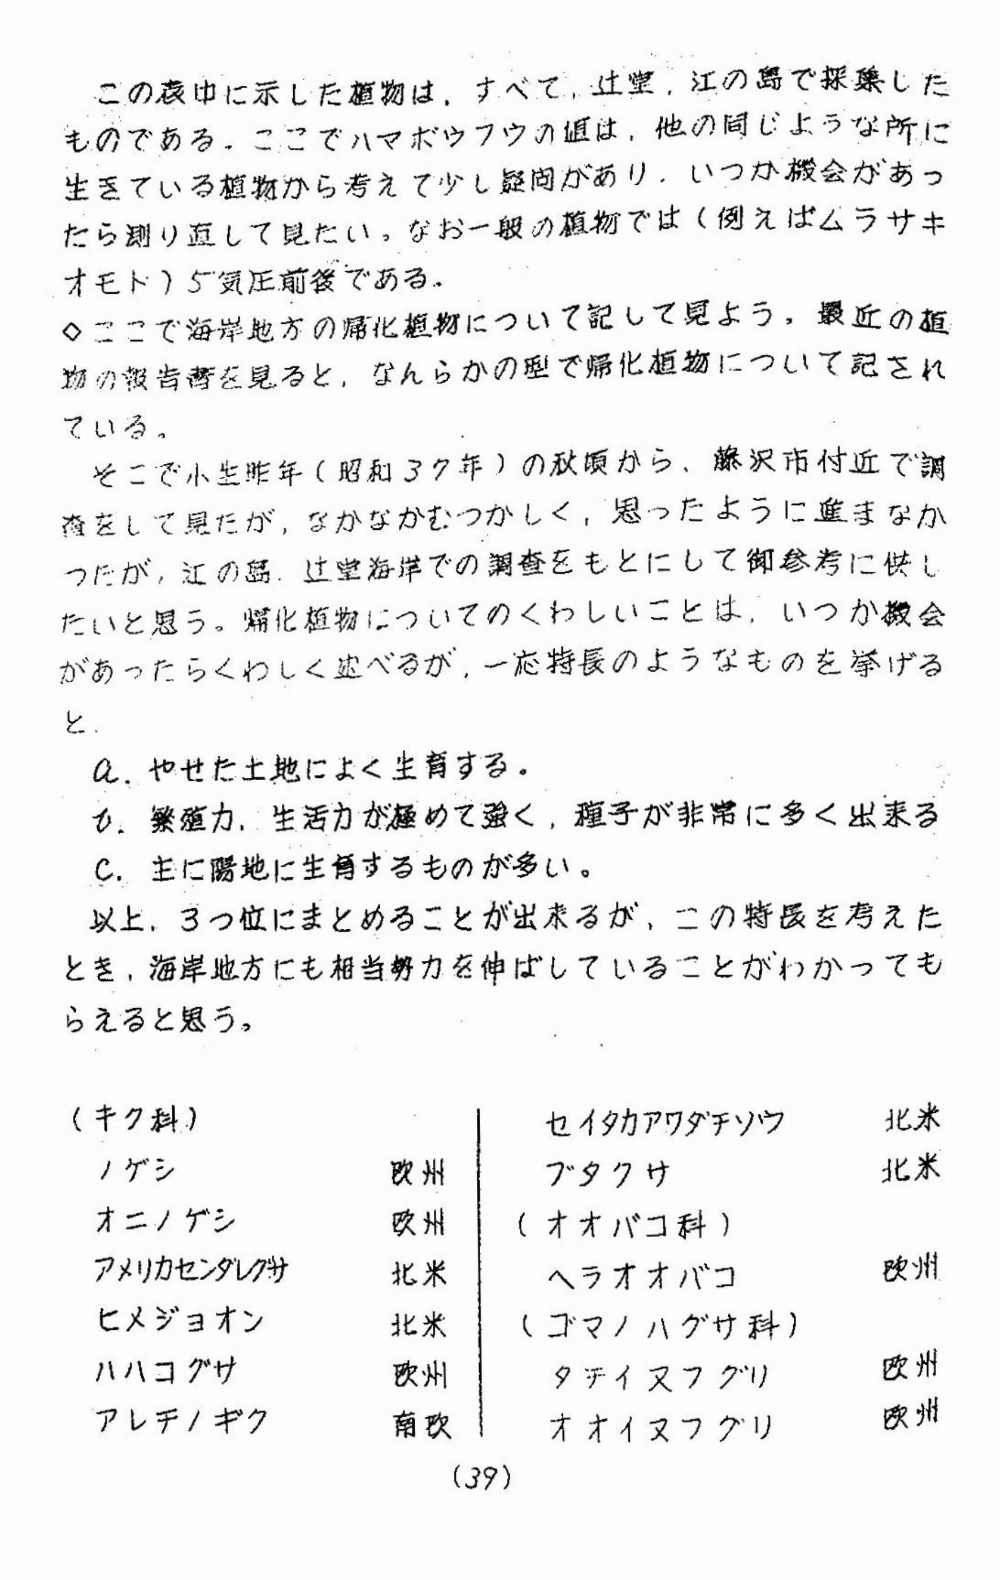 この表中に示した植物は，すべて，辻堂，江の島で採集した
ものである。ここでハマボウフウの値は，他の同じような所に
生きている植物から考えて少し疑問があり，いつか機会があっ
たら測り直して見たい。なお一般の植物では（例えばムラサキ
オモト）5気圧前後である。
◇ここで海岸地方の帰化植物について記して見よう。最近の植
物の報告書を見ると，なんらかの型で帰化植物について記され
ている。
そこで小生昨年（昭和37年）の秋頃から，藤沢市付近で調
査をして見たが，なかなかむつかしく，思ったように進まなか
つたが，江の島．辻堂海岸での調査をもとにして御参考に供し
たいと思う。帰化植物についてのくわしいことは，いつか機会
があったらくわしく述べるが，一応特長のようなものを挙げる
と．
a．やせた土地によく生育する。
b．繁殖力，生活力が極めて強く，種子が非常に多く出来る
C．主に陽地に生育するものが多い。
以上，3つ位にまとめることが出来るが，この特長を考えた
とき，海岸地方にも相当勢力を伸ばしていることがわかっても
らえると思う。
（キク科）
ノゲシ 欧州
オニノゲシ 欧州
アメリカセンダレグサ 北米
ヒメジョオン 北米
ハハコグサ 欧州
アレチノギク 南欧
セイタカアワダチソウ 北米
ブタクサ 北米
（オオバコ科）
ヘラオオバコ 欧州
（ゴマノハグサ科）
タチイヌフグリ 欧州
オオイヌフグリ 欧州
（39）